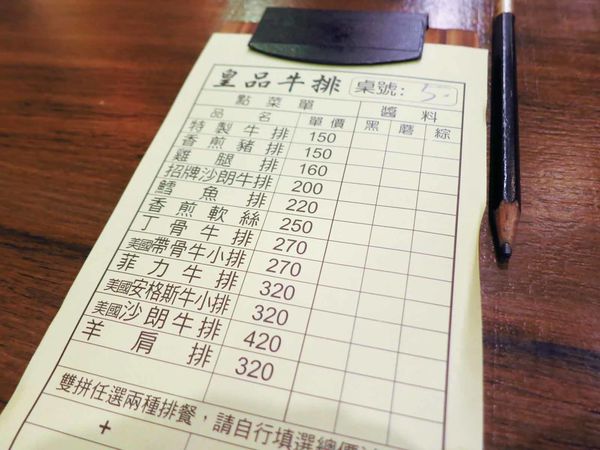 皇品牛排 桌號: 5
點菜單 醬料
品名 單價 黑 磨 綜
特製牛排 150
香煎豬排 150
雞腿排 160
招牌沙朗牛排 200
鱈魚排 220
香煎軟絲 250
丁骨牛排 270
美國帶骨牛小排 270
菲力牛排 320
美國安格斯牛小排 320
美國沙朗牛排 420
羊肩排 320
雙拼任選兩種排餐，請自行填選總價
+